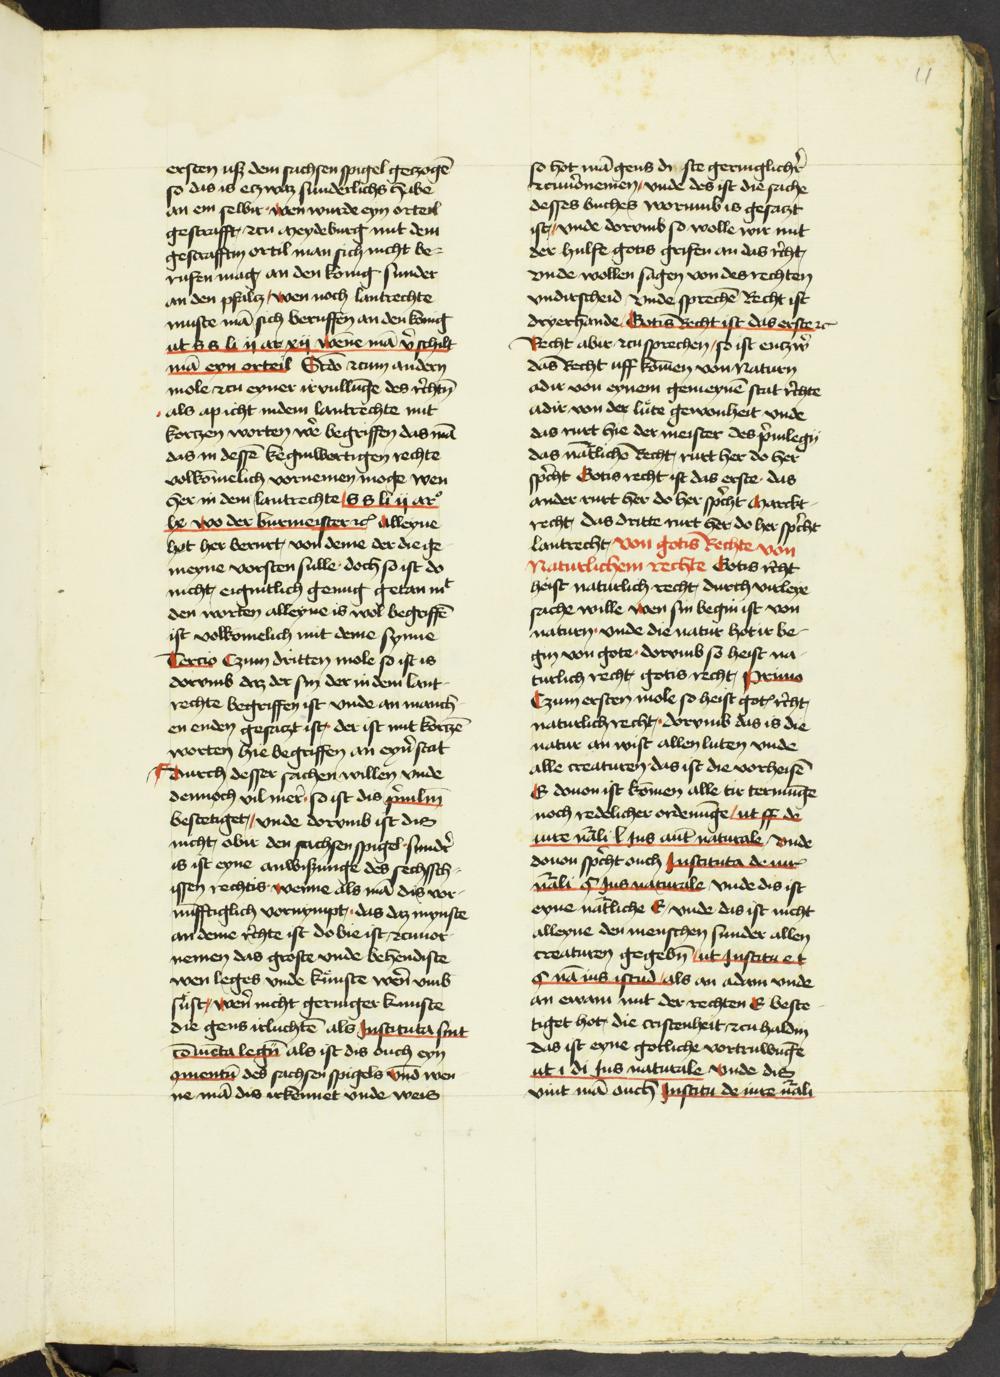 11
ersten uſz dem sachsen spigel geczogē
so das is eczwaz sunderlichs habe
an em selbir wen wurde eyn orteil
gestrafft zcu Meydeburg mit dem
gestrafftin ortil man sich nicht be-
rufen mag an den konig sunder
an den pfalcz wen noch lantrechte
muste mā sich beruffen an den konig
ut s s li ij ar xij wene mā v̄schilt
mā eyn orteil Scdo zcum andern
mole zcu eyner irvullūge des rechtin
als ap icht in dem lantrechte mit
kortzen worten wē begriffen das mā
das in dessē keginwertigen rechte
volkomelich vornemen moge wen
her in dem lantrechte s s li ij ar
wo der burmeister Alleyne
hot her berurt von deme der die ge
meyne vorsten sulle doch so ist do
nicht eigintlich genug getan mit
den worten alleyne is wol begriffē
ist volkomelich mit deme synne
Tercio Czum dritten mole so ist is
dorumb daz der sin der in dem lant-
rechte begriffen ist vnde an manch
en enden gesaczt ist der ist mit kortzē
worten hie begriffen an eyn̄ stat
Durch desser sachen willen vnde
dennoch vil mer so ist dis p̄uilm̄
bestetiget vnde dorumb ist dis
nicht obir den sachsen spigel sundr̄
is ist eyne anwisunge des sechsch-
issen rechtis wenne als mā dis vor-
nunfftiglich vornympt das daz mynste
an deme rechte ist do bie ist zcuuor-
nemen das groste vnde behendiste
wen leges vnde kunste wen̄ vmb
sust wen̄ nicht geringer kunste
die gens irluchtē als Instituta sint
legū als ist dis ouch eyn
des sachsen spigels vnd wen-
ne mā dis irkennet vnde weis
so hot mā gens di ste geringlichir
zcuuornemen vnde des ist die sache
desses buches worumb is gesatzt
ist vnde dorumb so wolle wir mit
der hulfe gotis grifen an das recht
vnde wollen sagen von des rechten
vndirscheid vnde sprechē Recht ist
dryerhande Gotis Recht ist das erste zc
Recht abir zcu sprechen so ist
das Recht uff komen von Naturn
adir von eynem gemeynē stat rechte
adir von der lute gewonheit vnde
das rurt hie der meister des p̄uilegij
das nat̄lichē Recht rurt her do her
spricht Gotis recht ist das erste das
ander rurt her do her spricht Marckt-
recht das dritte rurt her do her spricht
lantrecht Von gotis Rechte von
Naturlichem rechte Gotis recht
heist naturlich recht durch virleye
sache wille wen sin begin ist von
naturn vnde die natur hot ir be-
gin von gote dorumb so heist na-
turlich recht gotis recht Primo
Czum ersten mole so heist got recht
naturlich recht dorumb das is die
natur an wist allen luten vnde
alle creaturen das ist die vorheisē
E douon ist komen alle tir termūge
noch redelicher ordenūge ut ff de
iure nāli l Ius aut naturale vnde
douon spricht ouch Instituta de iur
nāli § Ius naturale vnde dis ist
eyne nat̄liche E vnde das ist nicht
alleyne den menschen sunder allen
creaturen gegebin ut Institu e t
§ nā ius istud als an adam vnde
an ewam mit der rechten E beste-
tiget hot die cristenheit zcu haldin
das ist eyne gotliche vortruwūge
ut i di Ius naturale vnde dis
vint mā ouch Institu de iure nāli